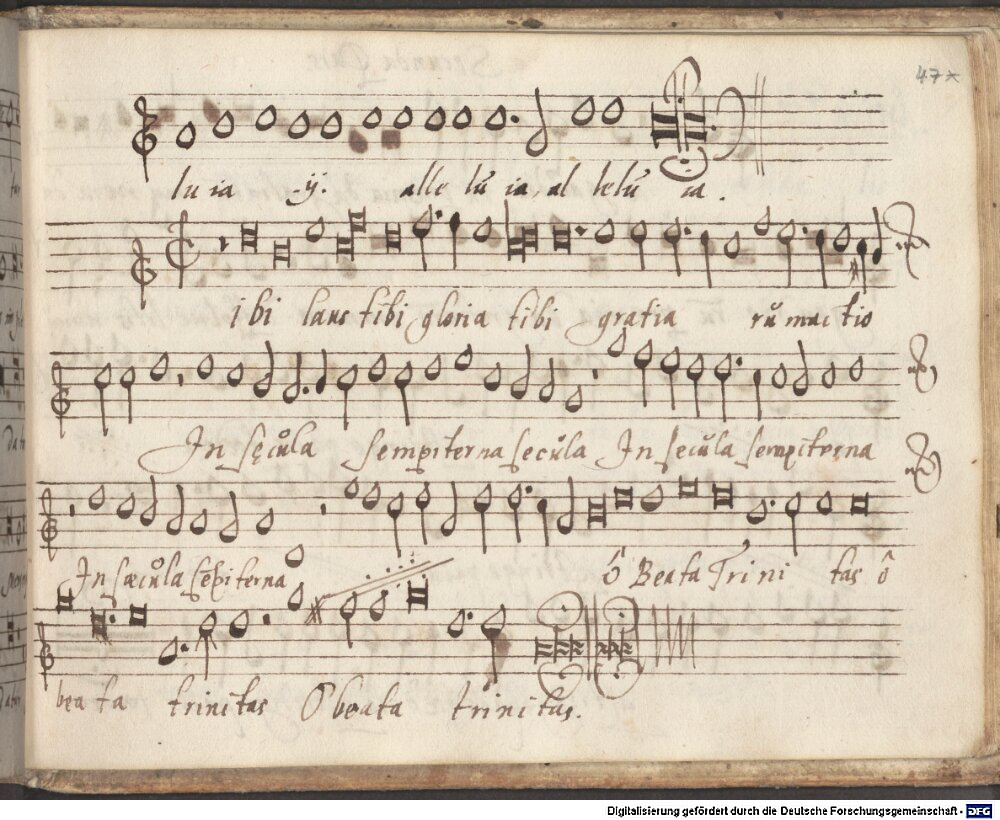 47x
lu ia ij. alle lu ia al lelu ia.
ibi laus tibi gloria tibi gratia rū mac tio
In sęcula sempiterna secula In secula sempiterna
In sæcula sēpiterna ô Beata Trini tas ô
bea ta trinitas O beata trinitas.
Digitalisierung gefördert durch die Deutsche Forschungsgemeinschaft - DFG